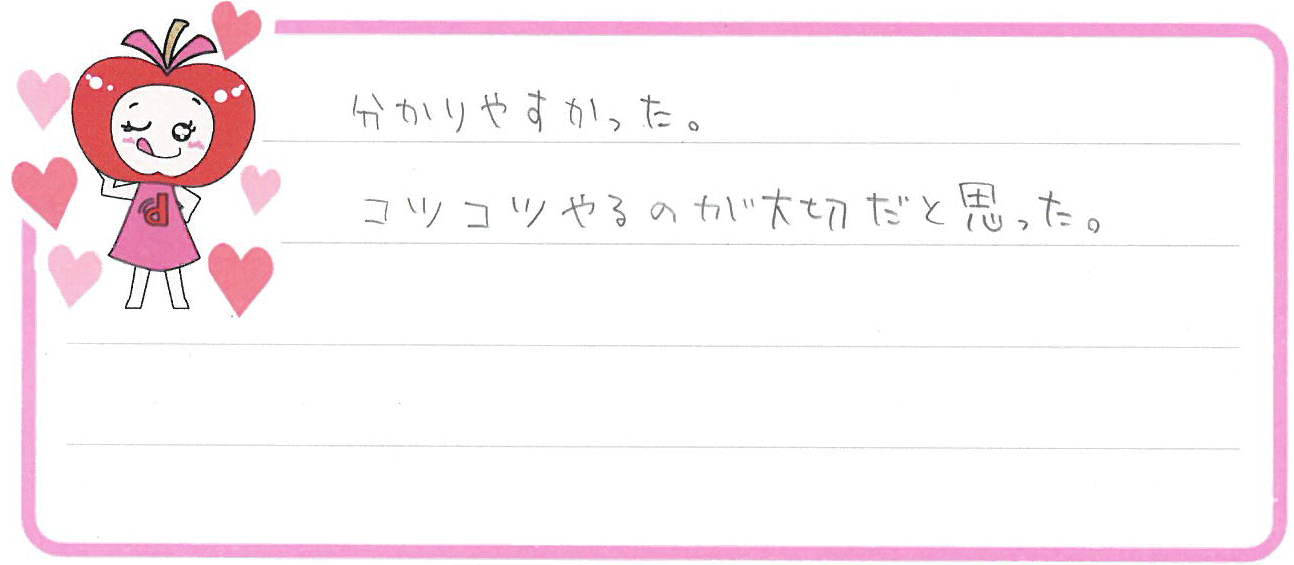 分かりやすかった。
コツコツやるのが大切だと思った。